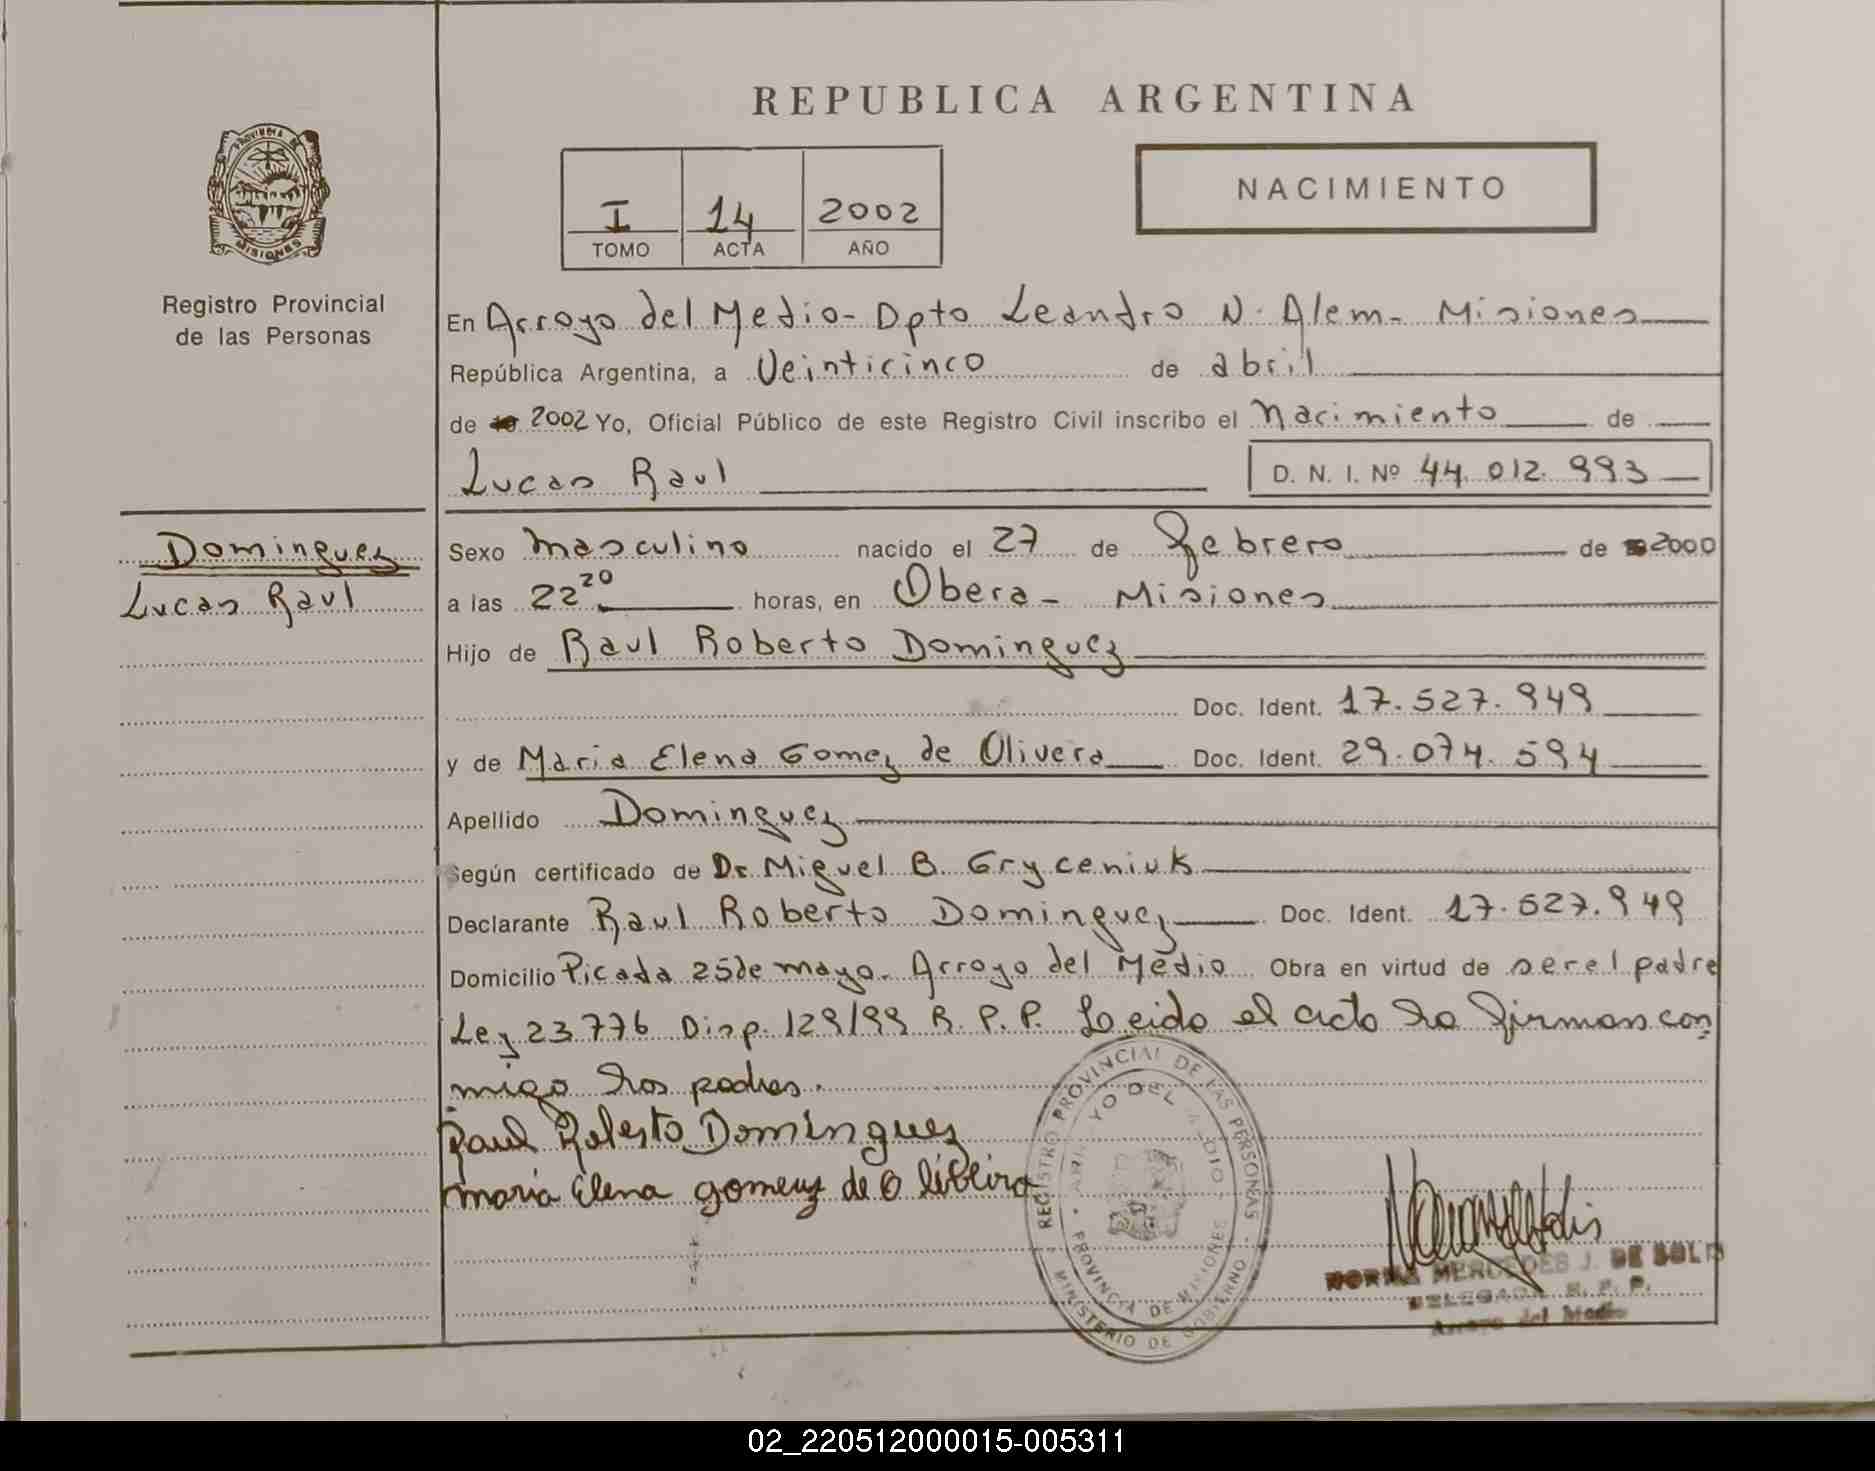 REPUBLICA ARGENTINA
PROVINCIA DE
MISIONES
Registro Provincial
de las Personas
I 14 2002
TOMO ACTA AÑO
NACIMIENTO
En Arroyo del Medio - Dpto Leandro N. Alem - Misiones
República Argentina, a Veinticinco de abril
de 2002 Yo, Oficial Público de este Registro Civil inscribo el Nacimiento de
Lucas Raul D. N. I. Nº 44.012.993
Dominguez
Lucas Raul
Sexo masculino nacido el 27 de febrero de 2000
a las 22 20 horas, en Obera - Misiones
Hijo de Raul Roberto Dominguez
Doc. Ident. 17.527.949
y de Maria Elena Gomez de Olivera Doc. Ident. 29.074.594
Apellido Dominguez
Según certificado de Dr Miguel B. Gryceniuk
Declarante Raul Roberto Dominguez Doc. Ident. 17.527.949
Domicilio Picada 25 de mayo - Arroyo del Medio Obra en virtud de ser el padre
Ley 23.776 Disp. 129/99 R. P. P. Leido el acta la firman con
migo los padres.
Raul Roberto Dominguez
maria Elena gomez de Oliveira
REGISTRO PROVINCIAL DE LAS PERSONAS
MINISTERIO DE GOBIERNO
ARROYO DEL MEDIO
PROVINCIA DE MISIONES
NORMA MERCEDES J. DE SOLIS
DELEGADA R. P. P.
Arroyo del Medio
02_220512000015-005311